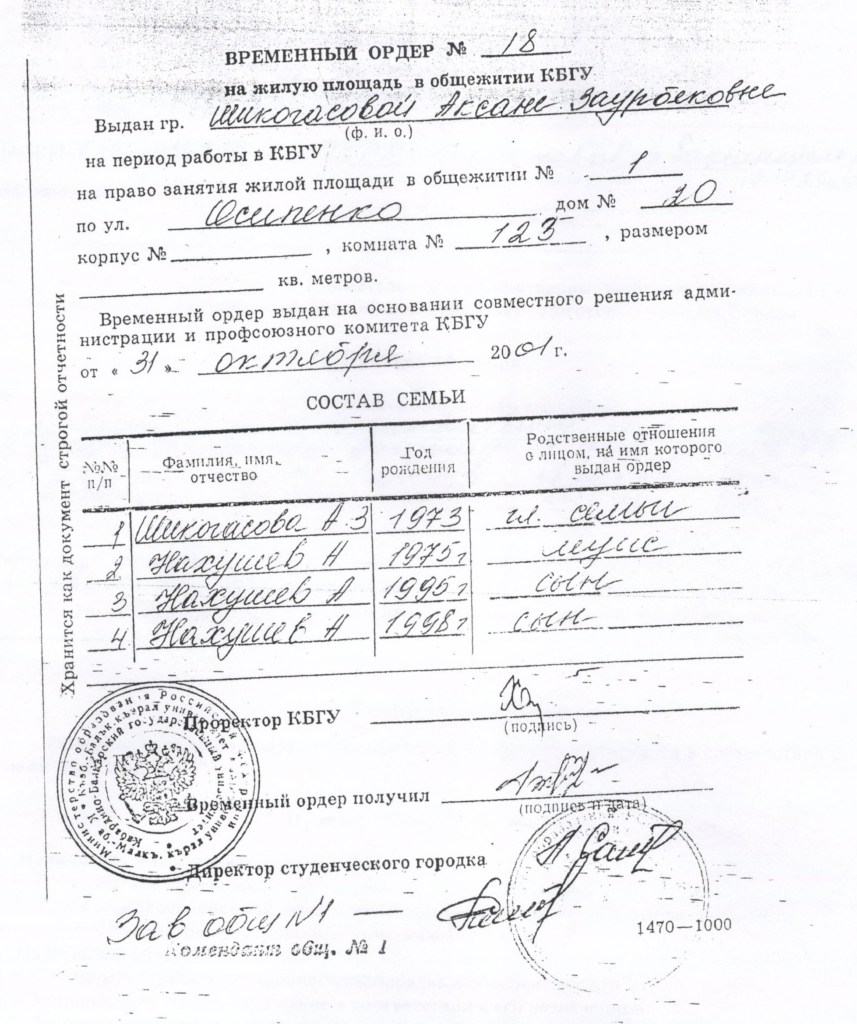 ВРЕМЕННЫЙ ОРДЕР № 18
на жилую площадь в общежитии КБГУ
Выдан гр. Шикогасовой Аксане Заурбековне
(ф. и. о.)
на период работы в КБГУ
на право занятия жилой площади в общежитии № 1
по ул. Осипенко дом № 20
корпус № , комната № 123 , размером
кв. метров.
Временный ордер выдан на основании совместного решения адми-
нистрации и профсоюзного комитета КБГУ
от « 31 » октября 2001 г.
СОСТАВ СЕМЬИ
№№ п/п Фамилия, имя, отчество Год рождения Родственные отношения с лицом, на имя которого выдан ордер
1 Шикогасова А З 1973 гл. семьи
2 Нахушев А 1975 г муж
3 Нахушев А 1995 г сын
4 Нахушев А 1998 г сын
Хранится как документ строгой отчетности
Проректор КБГУ
(подпись)
Временный ордер получил
(подпись и дата)
Директор студенческого городка
Зав общ №1
Комендант общ. № 1
1470—1000